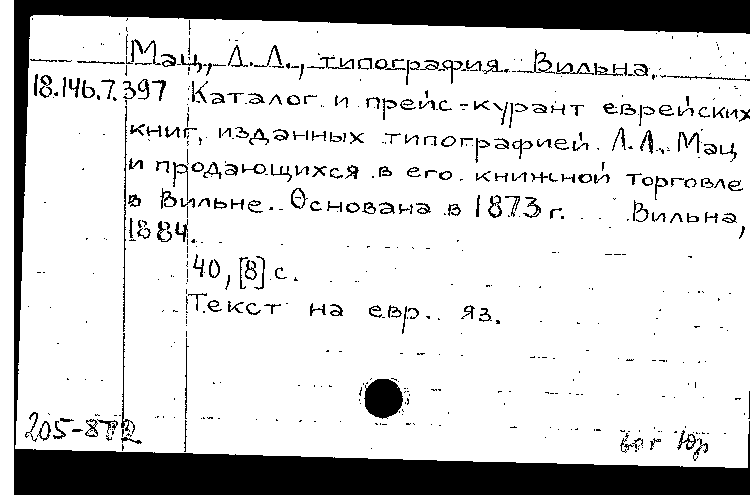 Мац, Л. Л., типография. Вильна.
18.146.7.397 Каталог и прейс-курант еврейских
книг, изданных типографией Л.Л. Мац
и продающихся в его книжной торговле
в Вильне. Основана в 1873 г. Вильна,
1884.
40, [8] с.
Текст на евр. яз.
205-872